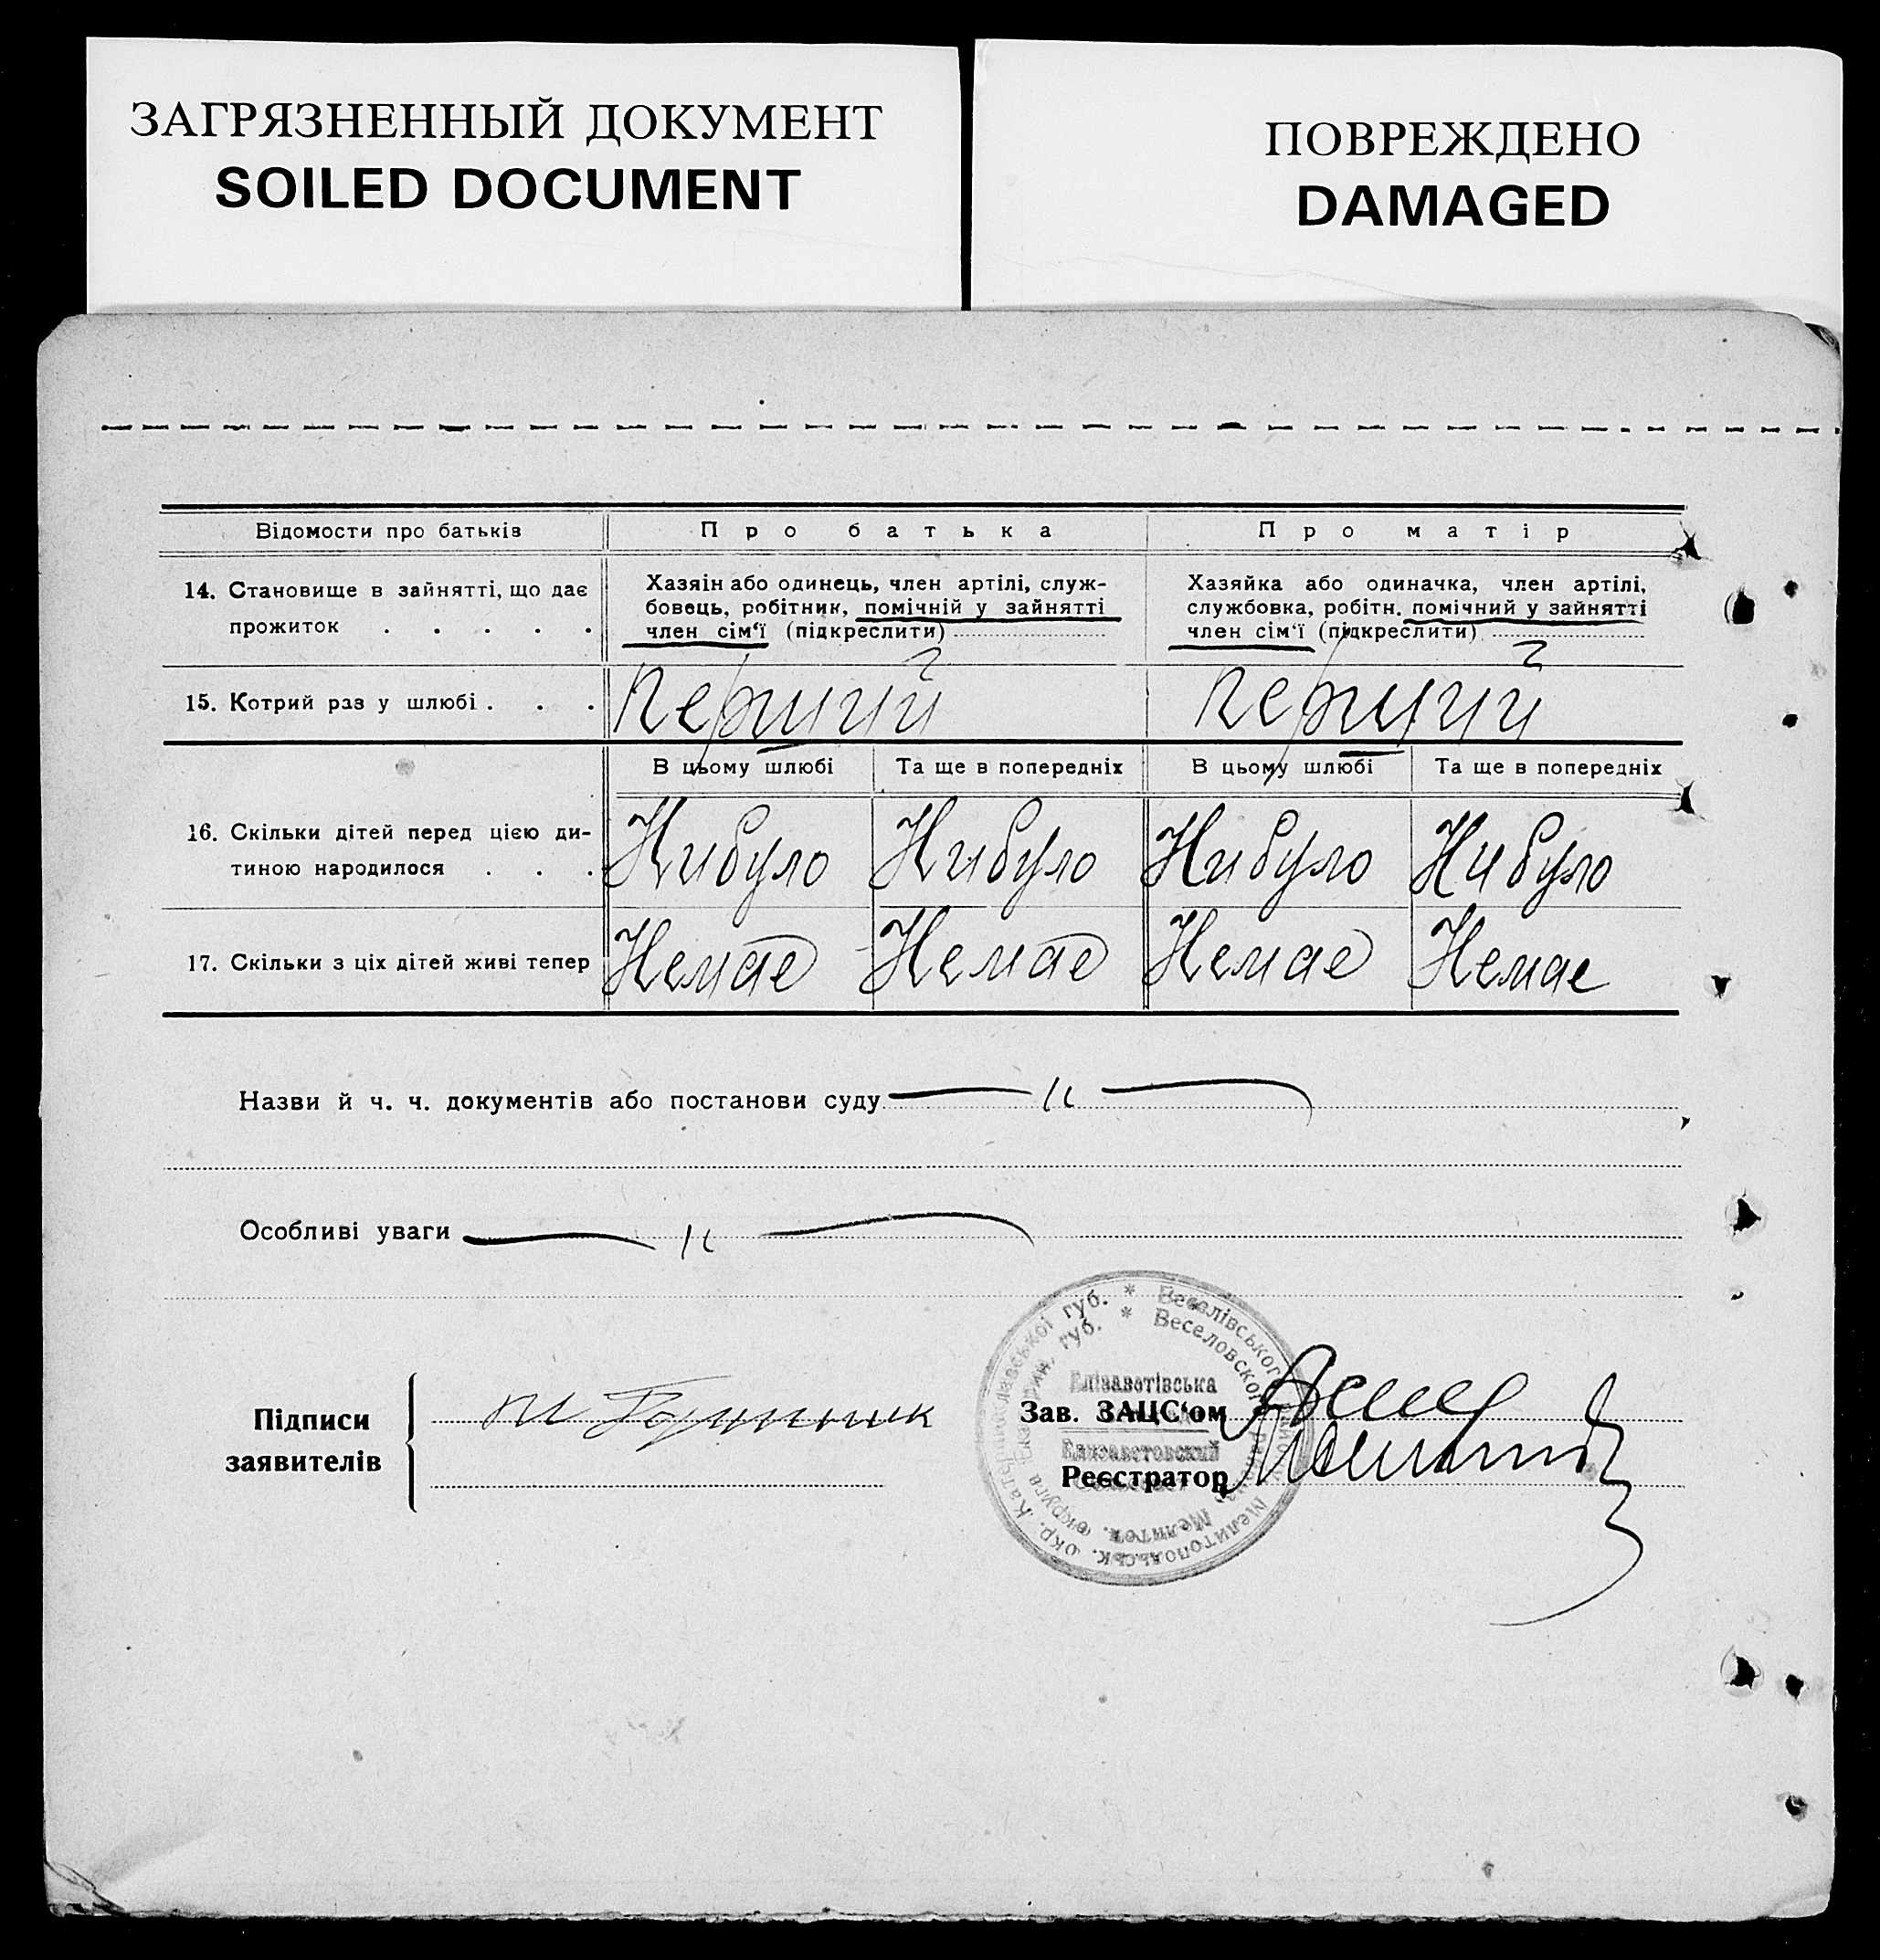 ЗАГРЯЗНЕННЫЙ ДОКУМЕНТ
SOILED DOCUMENT
ПОВРЕЖДЕНО
DAMAGED
Відомости про батьків
Про батька
Про матір
14. Становище в зайнятті, що дає
прожиток . . . . .
Хазяін або одинець, член артілі, служ-
бовець, робітник, помічній у зайнятті
член сім'ї (підкреслити)
Хазяйка або одиначка, член артілі,
службовка, робітн. помічний у зайнятті
член сім'ї (підкреслити)
15. Котрий раз у шлюбі . . .
перший
перший
В цьому шлюбі
Та ще в попередніх
В цьому шлюбі
Та ще в попередніх
16. Скільки дітей перед цією ди-
тиною народилося . . .
Нибуло
Нибуло
Нибуло
Нибуло
17. Скільки з ціх дітей живі тепер
Немає
Немає
Немає
Немає
Назви й ч. ч. документів або постанови суду
Особливі уваги
Підписи
заявителів
Зав. ЗАЦС'ом
Реєстратор
Катеринославської губ. * Веселівського
Мелитопольськ. окр.
губ. * Веселовского
Мелитоп. округа
Елізаветівська
Елизаветовский